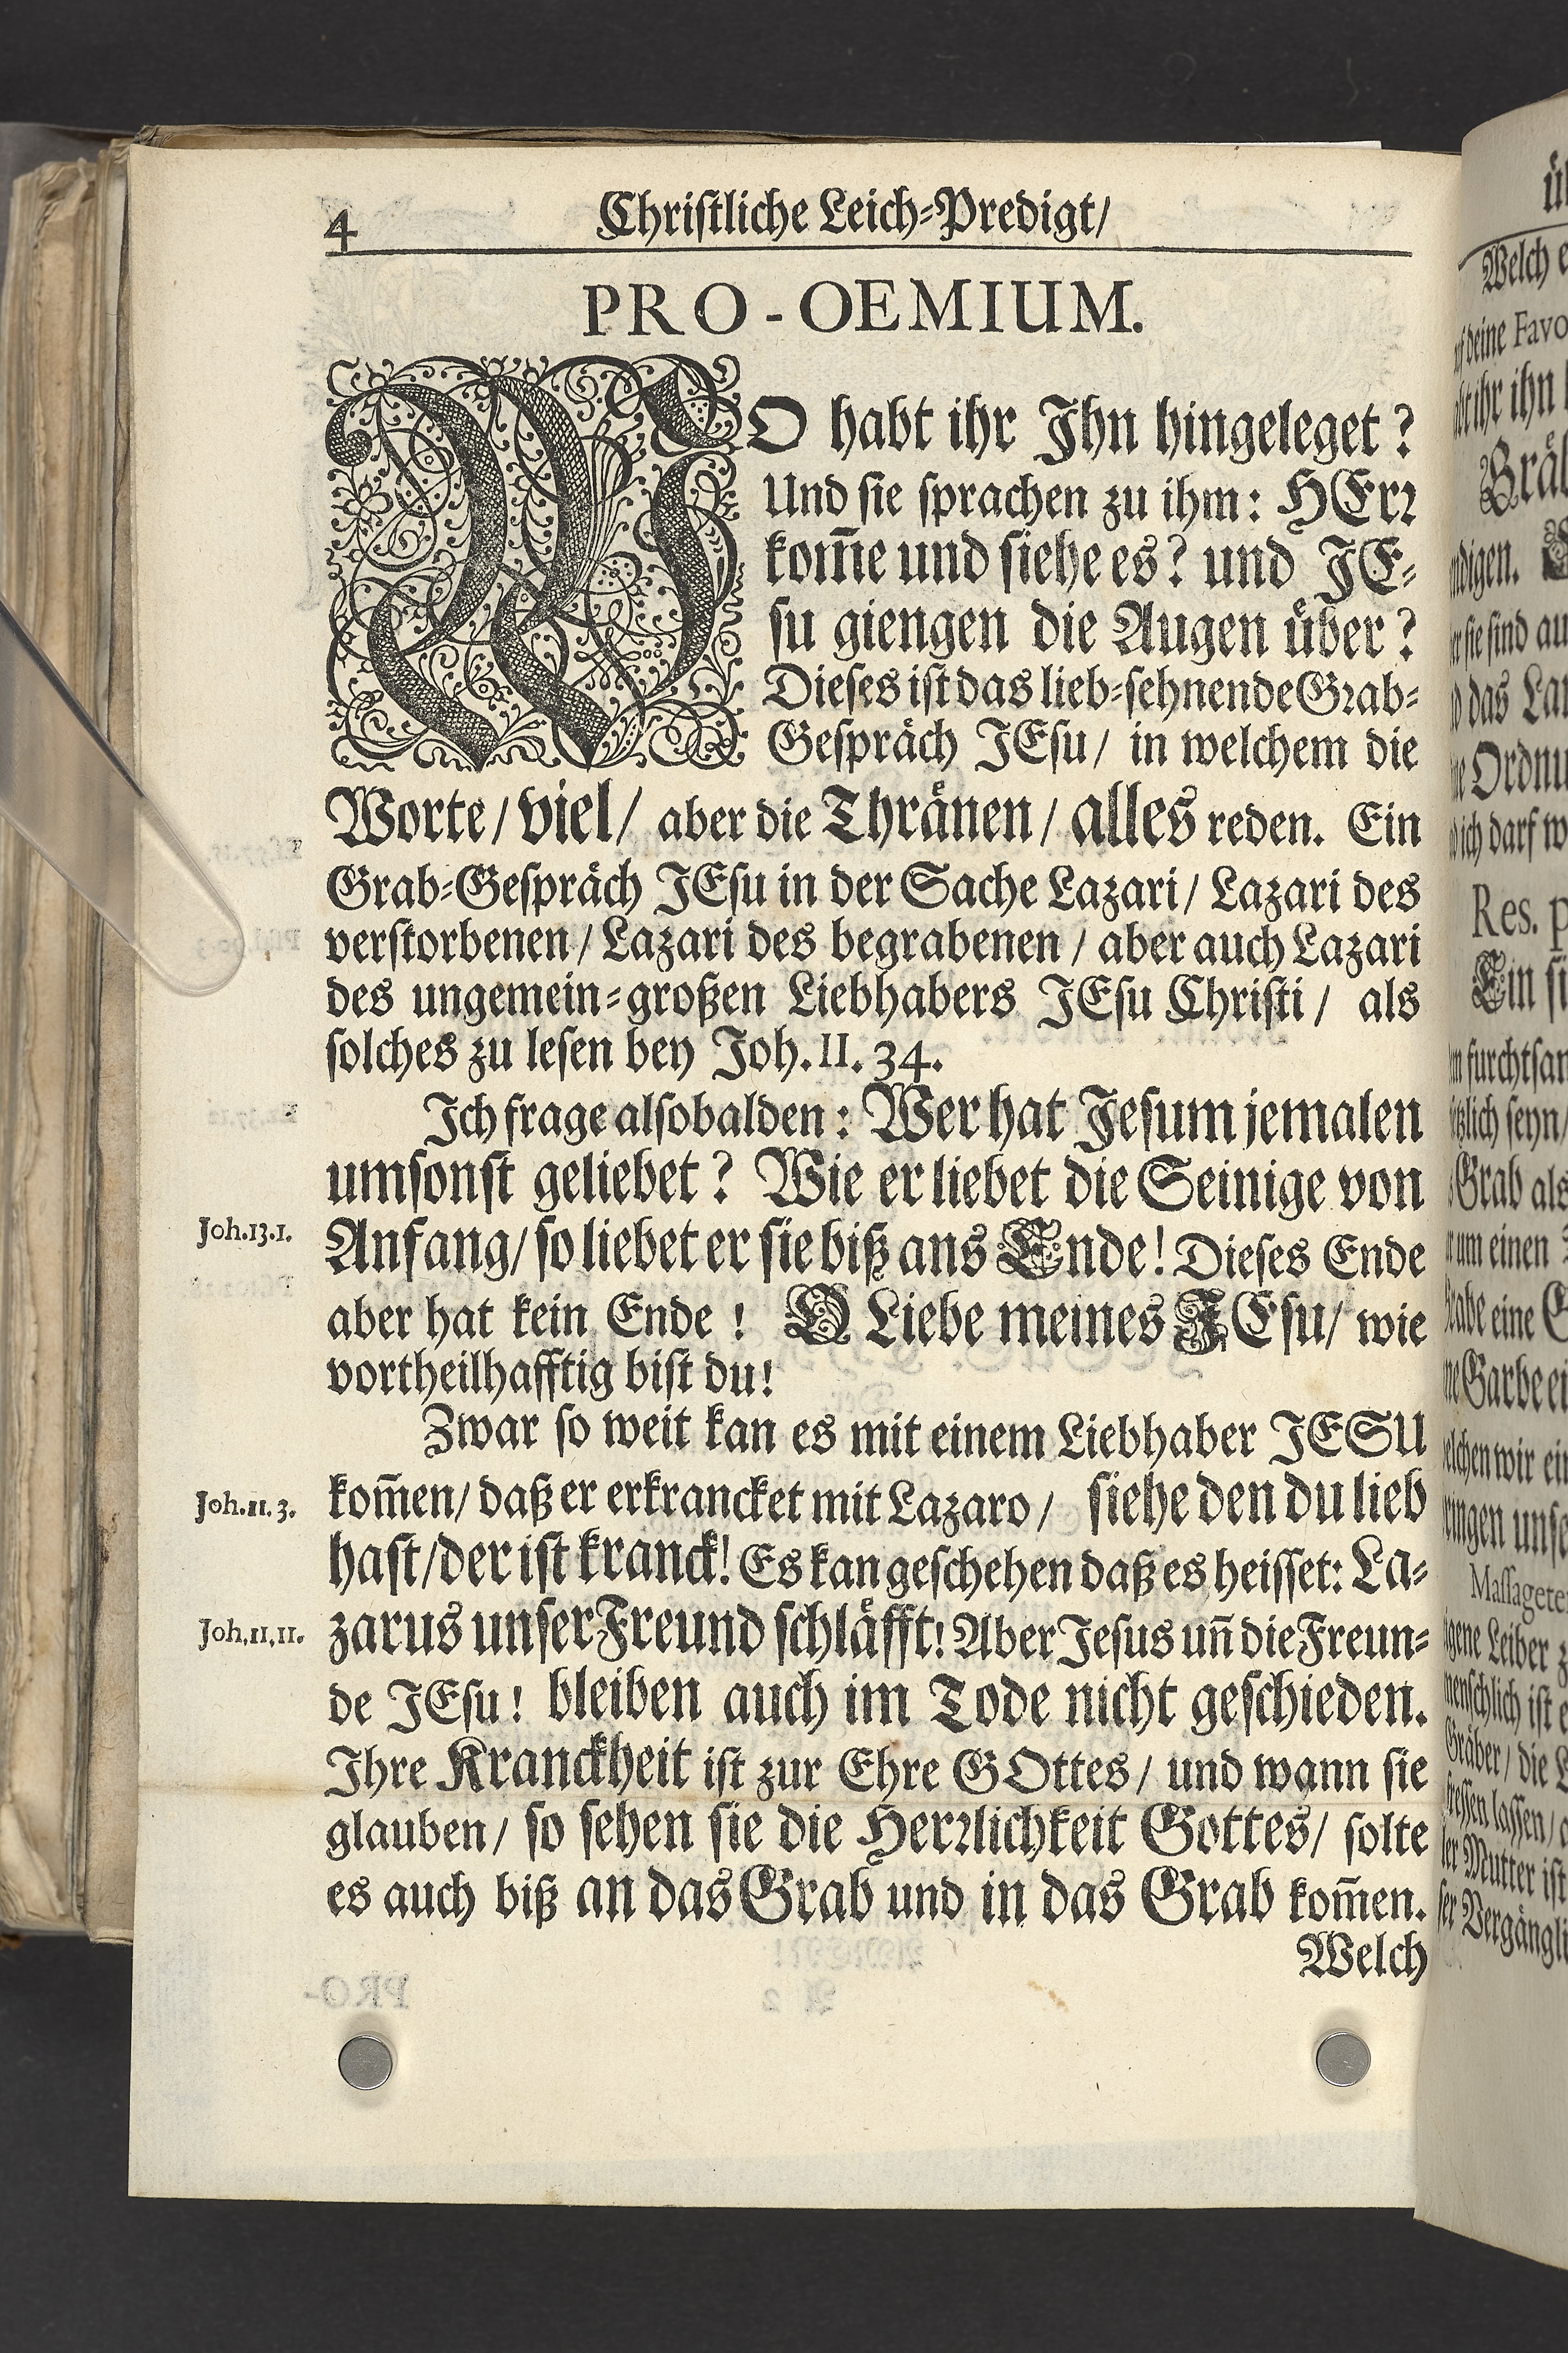 4 Christliche Leich-Predigt/
PRO-OEMIUM.
WO habt ihr Ihn hingeleget?
Und sie sprachen zu ihm: HErr
kom̄e und siehe es? und JE-
su giengen die Augen uͤber?
Dieses ist das lieb-sehnende Grab-
Gespraͤch JEsu/ in welchem die
Worte/ viel/ aber die Thraͤnen/ alles reden. Ein
Grab-Gespraͤch JEsu in der Sache Lazari/ Lazari des
verstorbenen/ Lazari des begrabenen/ aber auch Lazari
des ungemein-großen Liebhabers JEsu Christi/ als
solches zu lesen bey Joh. II. 34.
Ich frage alsobalden: Wer hat Jesum jemalen
umsonst geliebet? Wie er liebet die Seinige von
Joh. 13. 1. Anfang/ so liebet er sie biß ans Ende! Dieses Ende
aber hat kein Ende! O Liebe meines JEsu/ wie
vortheilhafftig bist du!
Zwar so weit kan es mit einem Liebhaber JESU
Joh. 11. 3. kom̄en/ daß er erkrancket mit Lazaro/ siehe den du lieb
hast/ der ist kranck! Es kan geschehen daß es heisset: La-
Joh. 11, 11. zarus unser Freund schlaͤfft! Aber Jesus un̄ die Freun-
de JEsu! bleiben auch im Tode nicht geschieden.
Ihre Kranckheit ist zur Ehre GOttes/ und wann sie
glauben/ so sehen sie die Herrlichkeit Gottes/ solte
es auch biß an das Grab und in das Grab kom̄en.
Welch